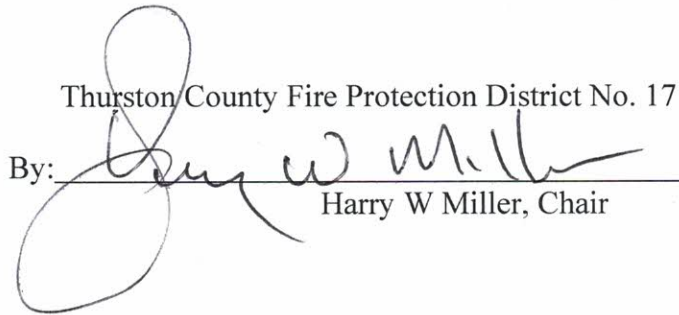 Thurston County Fire Protection District No. 17
By: Harry W Miller
Harry W Miller, Chair